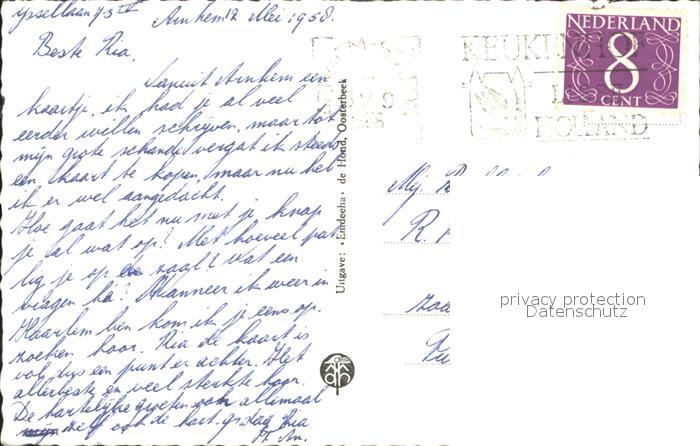 Ijssellaan 73 IV Arnhem 12 Mei 1958.
Beste Ria,
Vanuit Arnhem een
kaartje, ik had je al veel
eerder willen schrijven, maar tot
mijn grote schande vergat ik steeds
een kaart te kopen, maar nu heb
ik er wel aangedacht.
Hoe gaat het nu met je knap
je al wat op? Met hoeveel pat
lig je op zaal? Wat een
vragen hè? Wanneer ik weer in
Haarlem ben kom ik je eens op
zoeken hoor. Ria de kaart is
vol, dus een punt er achter. Het
allerbeste en veel sterkte hoor.
De hartelijke groeten aan allemaal
zelf ook de hart. gr. dag Ria
Uitgave: «Emdeeha» de Hond, Oosterbeek
KEUKENHOF
HOLLAND
NEDERLAND
8
CENT
Mej.
R.
privacy protection
Datenschutz